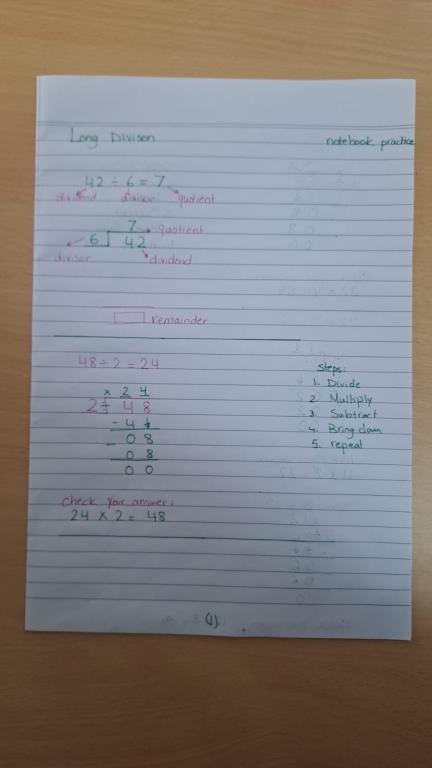 Long Divison
notebook practice
42 ÷ 6 = 7
dividend divisor quotient
7 quotient
6 42
divisor dividend
remainder
48 ÷ 2 = 24
Steps:
1. Divide
2. Multiply
3. Subtract
4. Bring down
5. repeat
× 2 4
2 ÷ 4 8
- 4 ↓
- 0 8
0 8
0 0
Check your answer:
24 × 2 = 48
(1)